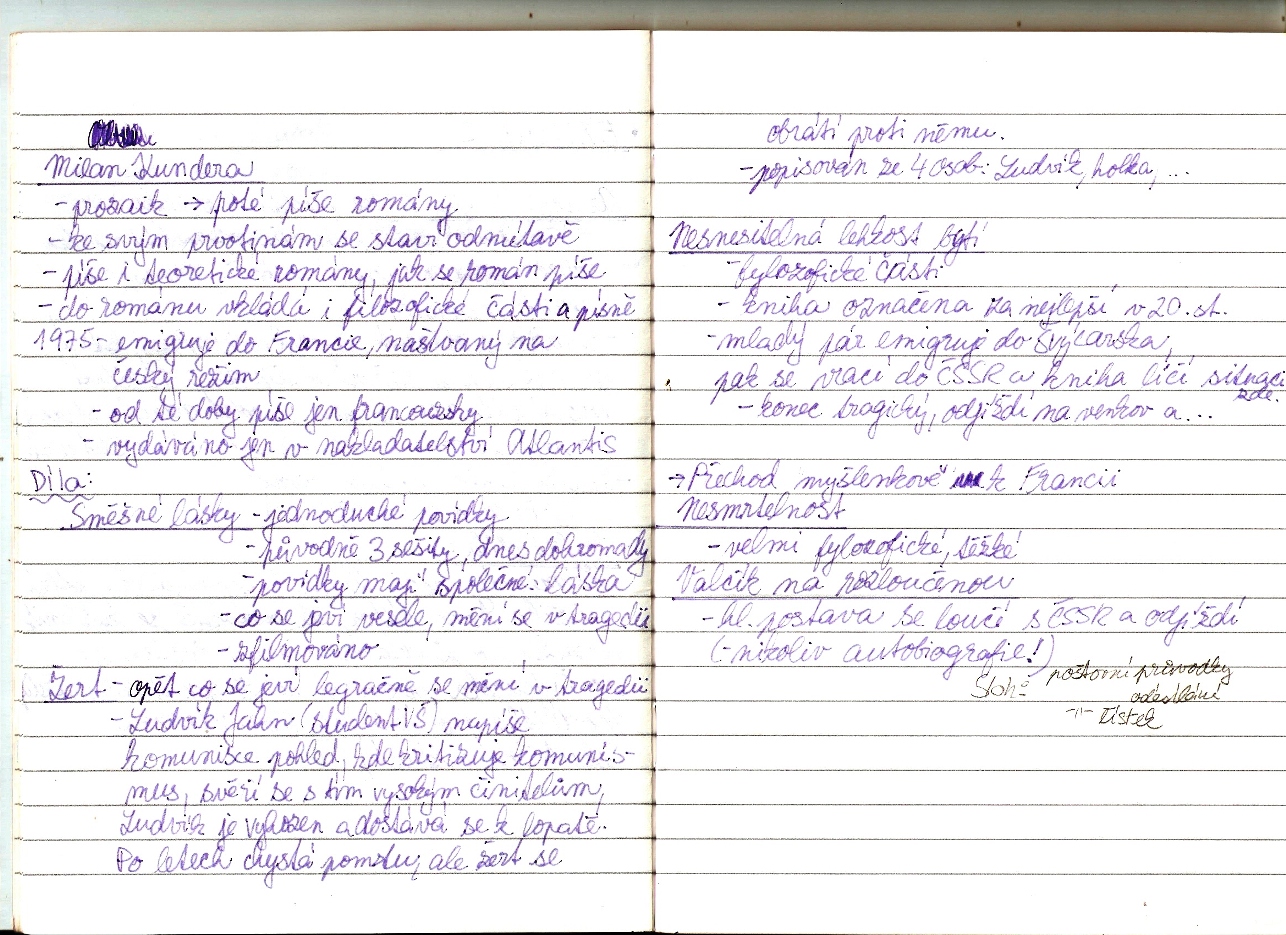 Milan Kundera
- prozaik → poté píše romány
- ke svým prvotinám se staví odmítavě
- píše i teoretické romány, jak se román píše
- do románu vkládá i filozofické části a písně
1975 - emigruje do Francie, naštvaný na
český režim
- od té doby píše jen francouzsky
- vydáváno jen v nakladatelství Atlantis
Díla:
Směšné lásky - jednoduché povídky
- původně 3 sešity, dnes dohromady
- povídky mají společné: láska
- co se jeví vesele, mění se v tragedii
- zfilmováno
Žert - opět co se jeví legračně se mění v tragedii
- Ludvík Jahn (student VŠ) napíše
komunisce pohled, kde kritizuje komunis-
mus, svěří se s tím vysokým činitelům,
Ludvík je vyhozen a dostává se k lopatě.
Po letech chystá pomstu, ale žert se
obrátí proti němu.
- popisován ze 4 osob: Ludvík, holka, ...
Nesnesitelná lehkost bytí
- fylozofické části
- kniha označena za nejlepší v 20. st.
- mladý pár emigruje do Švýcarska,
pak se vrací do ČSSR a kniha líčí situaci
zde.
- konec tragický, odjíždí na venkov a...
→ Přechod myšlenkově k Francii
Nesmrtelnost
- velmi fylozofické, těžké
Valčík na rozloučenou
- hl. postava se loučí s ČSSR a odjíždí
(- nikoliv autobiografie!)
Sloh: poštovní průvodky
odeslání
-"- lístek